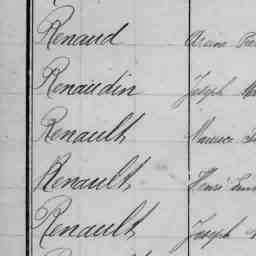 Renaud
Renaudin Joseph
Renault Maurice
Renault Henri
Renault Joseph